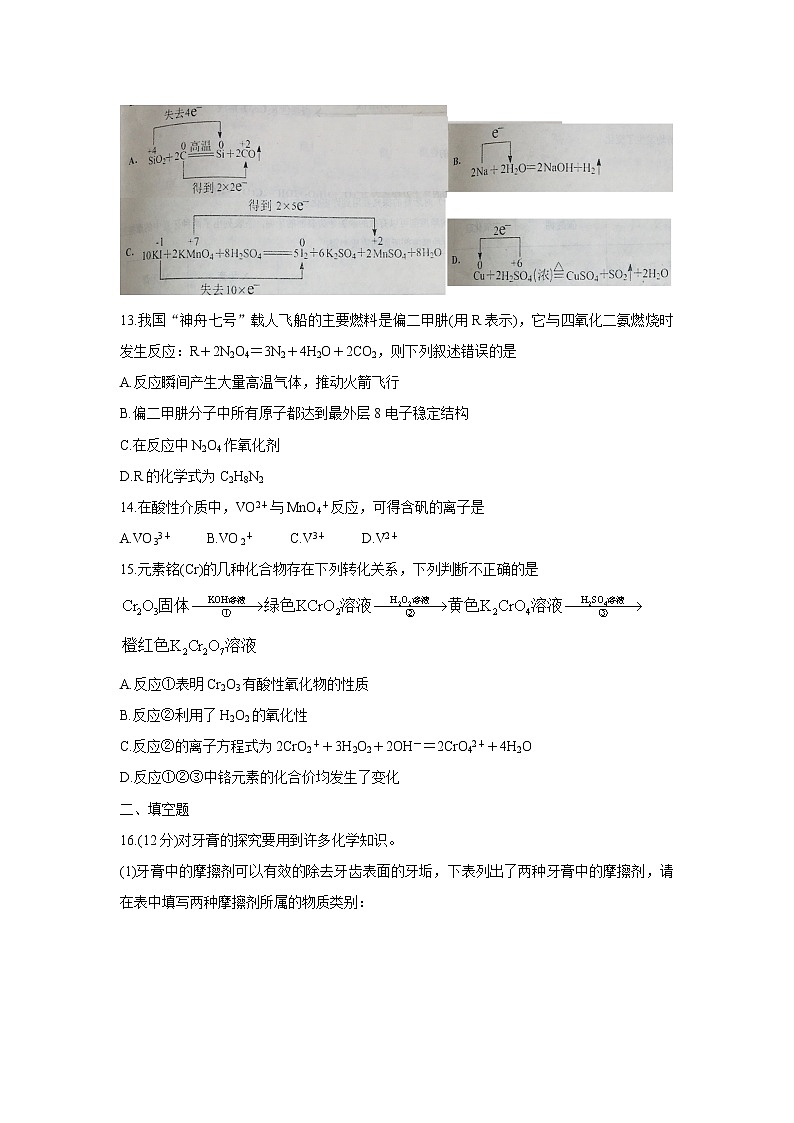 失去4e⁻
+4 0 0 +2
A. SiO₂+2C 高温 Si+2CO↑
得到 2×2e⁻
e⁻
B. 2Na+2H₂O=2NaOH+H₂↑
得到 2×5e⁻
-1 +7 0 +2
C. 10KI+2KMnO₄+8H₂SO₄═5I₂+6K₂SO₄+2MnSO₄+8H₂O
失去10×e⁻
2e⁻
0 +6
D. Cu+2H₂SO₄(浓)≜CuSO₄+SO₂↑+2H₂O
13.我国“神舟七号”载人飞船的主要燃料是偏二甲肼(用R表示)，它与四氧化二氨燃烧时
发生反应：R＋2N₂O₄＝3N₂＋4H₂O＋2CO₂，则下列叙述错误的是
A.反应瞬间产生大量高温气体，推动火箭飞行
B.偏二甲肼分子中所有原子都达到最外层8电子稳定结构
C.在反应中N₂O₄作氧化剂
D.R的化学式为C₂H₈N₂
14.在酸性介质中，VO²⁺与MnO₄⁺反应，可得含矾的离子是
A.VO₃³⁺ B.VO₂⁺ C.V³⁺ D.V²⁺
15.元素铭(Cr)的几种化合物存在下列转化关系，下列判断不正确的是
Cr₂O₃固体 —KOH溶液①→ 绿色KCrO₂溶液 —H₂O₂溶液②→ 黄色K₂CrO₄溶液 —H₂SO₄溶液③→
橙红色K₂Cr₂O₇溶液
A.反应①表明Cr₂O₃有酸性氧化物的性质
B.反应②利用了H₂O₂的氧化性
C.反应②的离子方程式为2CrO₂⁺＋3H₂O₂＋2OH⁻＝2CrO₄²⁺＋4H₂O
D.反应①②③中铬元素的化合价均发生了变化
二、填空题
16.(12分)对牙膏的探究要用到许多化学知识。
(1)牙膏中的摩擦剂可以有效的除去牙齿表面的牙垢，下表列出了两种牙膏中的摩擦剂，请
在表中填写两种摩擦剂所属的物质类别：